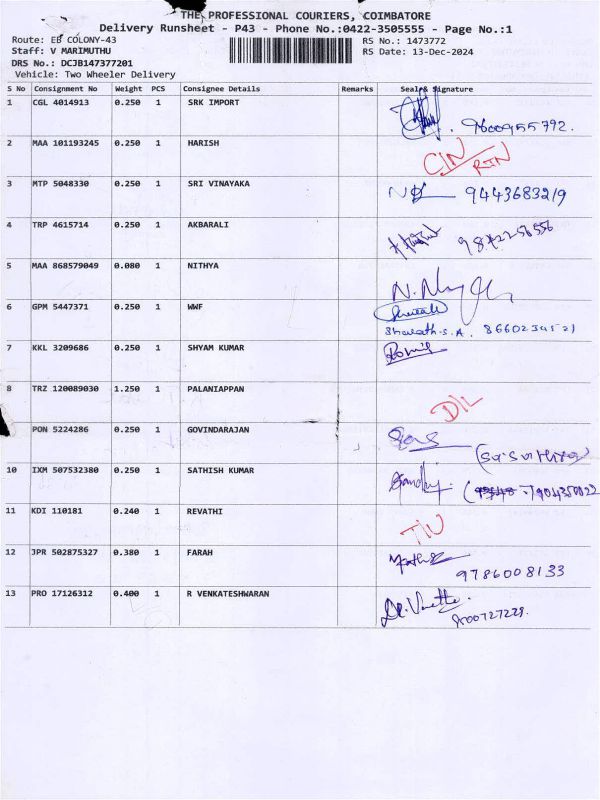 THE PROFESSIONAL COURIERS, COIMBATORE
Delivery Runsheet - P43 - Phone No.:0422-3505555 - Page No.:1
Route: EB COLONY-43 RS No.: 1473772
Staff: V MARIMUTHU RS Date: 13-Dec-2024
DRS No.: DCJB147377201
Vehicle: Two Wheeler Delivery
S No Consignment No Weight PCS Consignee Details Remarks Seal& Signature
1 CGL 4014913 0.250 1 SRK IMPORT
2 MAA 101193245 0.250 1 HARISH CIN RTN
3 MTP 5048330 0.250 1 SRI VINAYAKA 9443683219
4 TRP 4615714 0.250 1 AKBARALI
5 MAA 868579049 0.080 1 NITHYA
6 GPM 5447371 0.250 1 WWF
Sharath.S.A.
7 KKL 3209686 0.250 1 SHYAM KUMAR
8 TRZ 120089030 1.250 1 PALANIAPPAN DIL
PON 5224286 0.250 1 GOVINDARAJAN
10 IXM 507532380 0.250 1 SATHISH KUMAR
11 KDI 110181 0.240 1 REVATHI
12 JPR 502875327 0.380 1 FARAH
9786008133
13 PRO 17126312 0.400 1 R VENKATESHWARAN